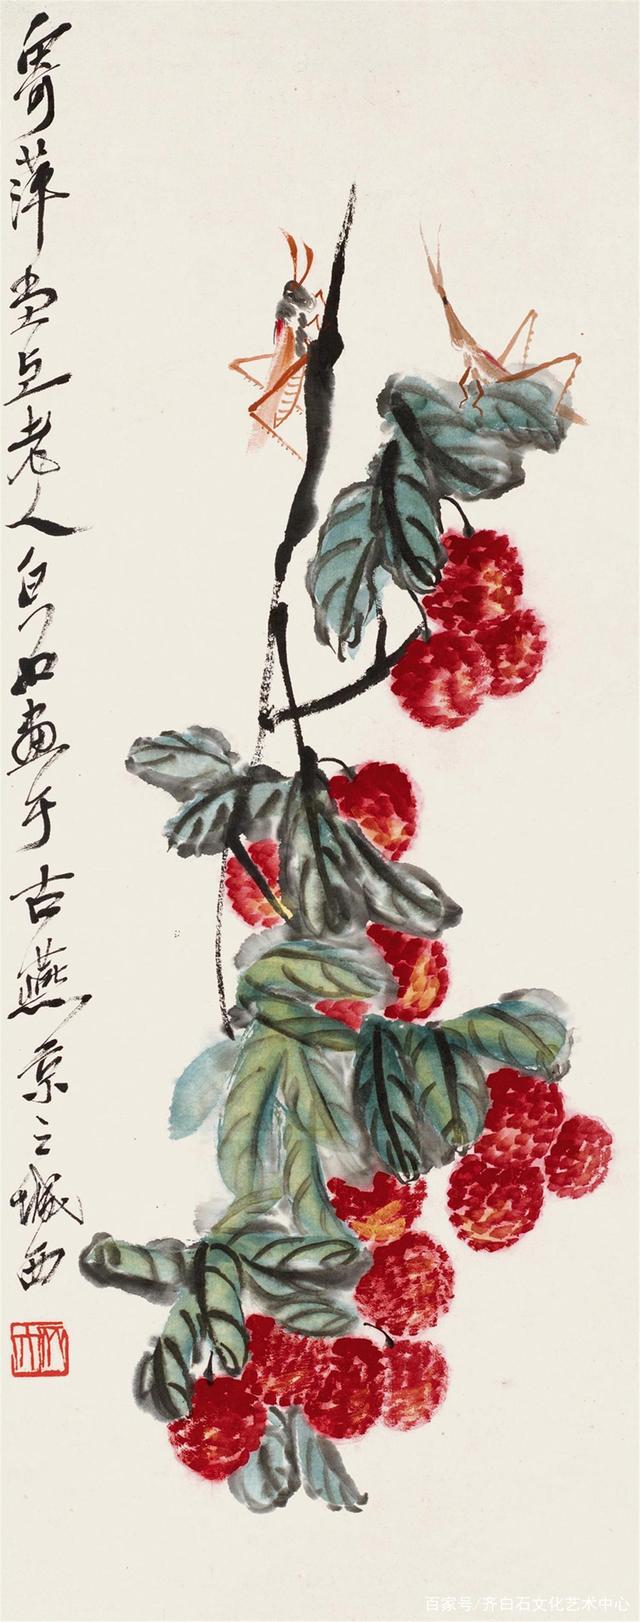 寄萍堂上老人白石畫于古燕京之城西
百家号/齐白石文化艺术中心